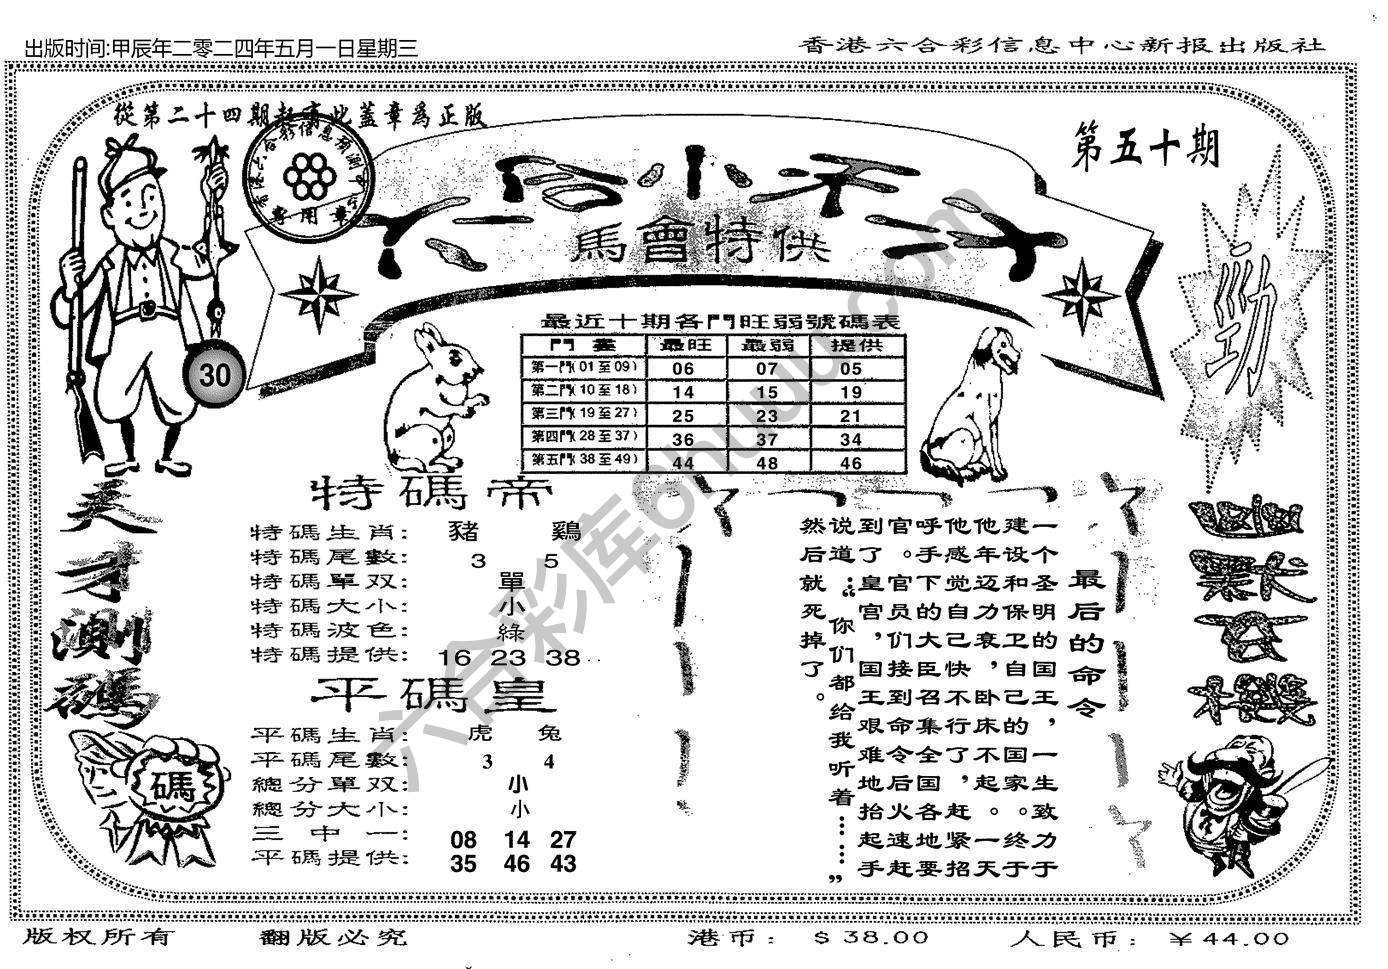 出版时间:甲辰年二零二四年五月一日星期三
香港六合彩信息中心新报出版社
從第二十四期起購此蓋章爲正版
第五十期
馬會特供
勁
30
最近十期各門旺弱號碼表
門 最旺 最弱 提供
第一門(01至09) 06 07 05
第二門(10至18) 14 15 19
第三門(19至27) 25 23 21
第四門(28至37) 36 37 34
第五門(38至49) 44 48 46
天才測碼
碼
特碼帝
特碼生肖: 豬 鷄
特碼尾數: 3 5
特碼單双: 單
特碼大小: 小
特碼波色: 綠
特碼提供: 16 23 38
平碼皇
平碼生肖: 虎 兔
平碼尾數: 3 4
總分單双: 小
總分大小: 小
三中一: 08 14 27
平碼提供: 35 46 43
最后的命令
一个圣明的国王,一生致力于
建设和保卫自己的国家。终于
他年迈力衰,卧床不起。一天
他感觉自己快不行了,赶紧招
呼手下的大臣召集全国各地要
官。官员们接到命令后火速赶
到了皇官,国王艰难地抬起手
说道:“你们都给我听着……”
然后就死掉了。
六合彩库6huu.com
版权所有
翻版必究
港币: $38.00
人民币: ¥44.00